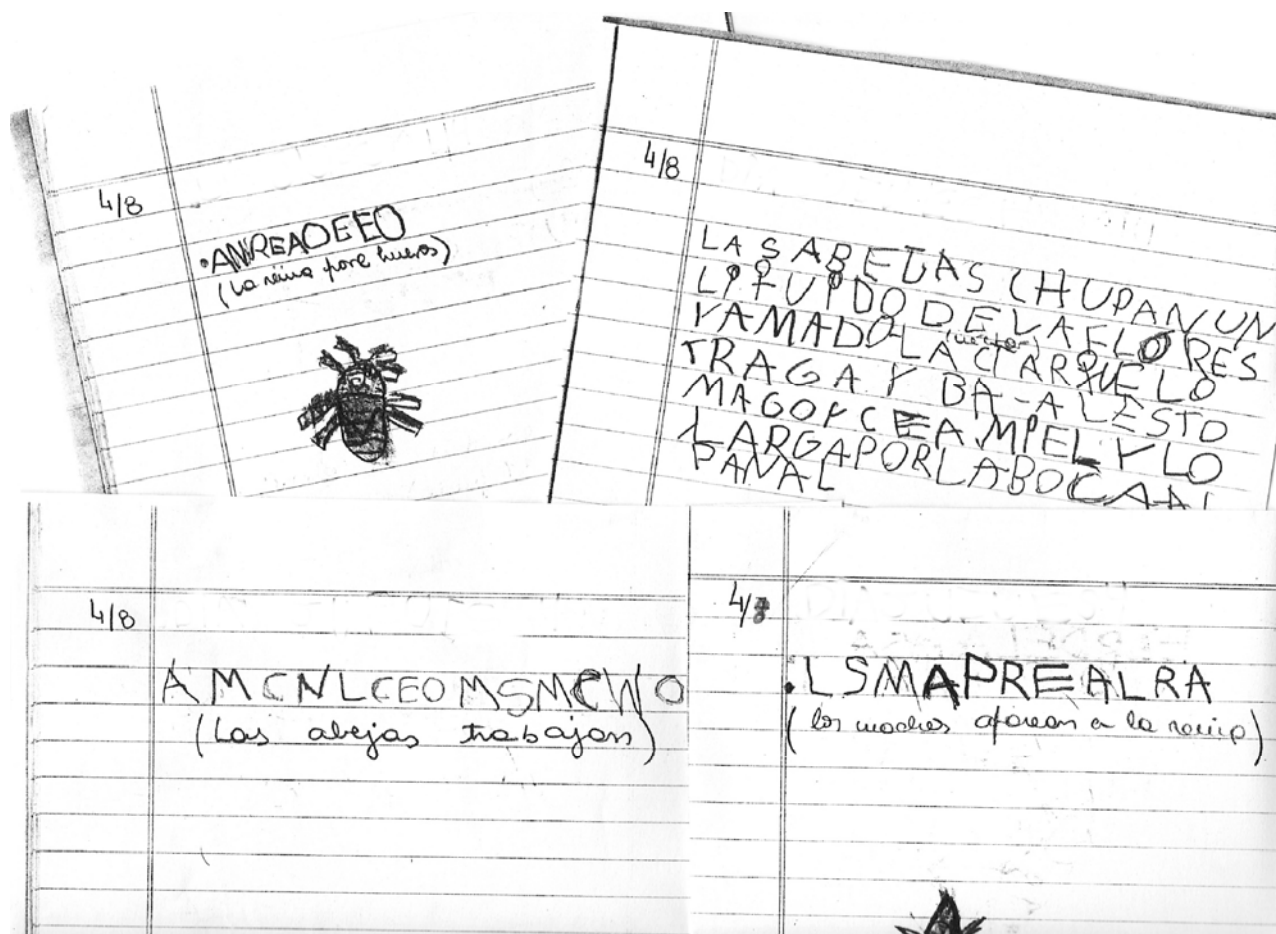 4/8
•ANREADEEO
(La reina pone huevos)
4/8
LAS ABEJAS CHUPAN UN
LIQUIDO DE LA FLORES
YAMADO LACTAR QUE LO
TRAGA Y BA-A LESTO
MAGO Y CEA MIEL Y LO
LARGA POR LA BOCA AL
PANAL
4/8
AMCNLCEOMSMCWO
(Las abejas trabajan)
4/8
•LSMAPREALRA
(los machos a la reina)